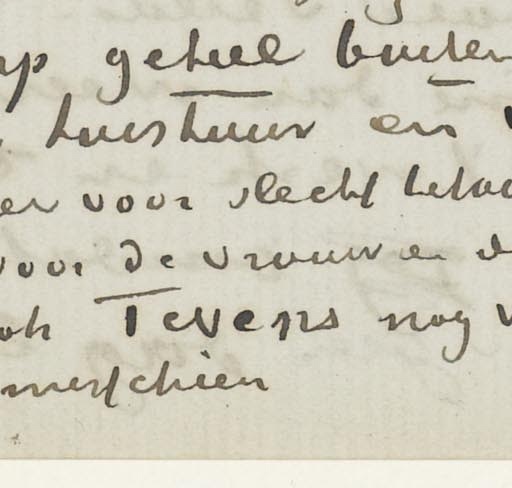 op geheel buiten
huurhuur en
voor slecht betaa
voor de vrouw en d
ook Tevens nog v
misschien